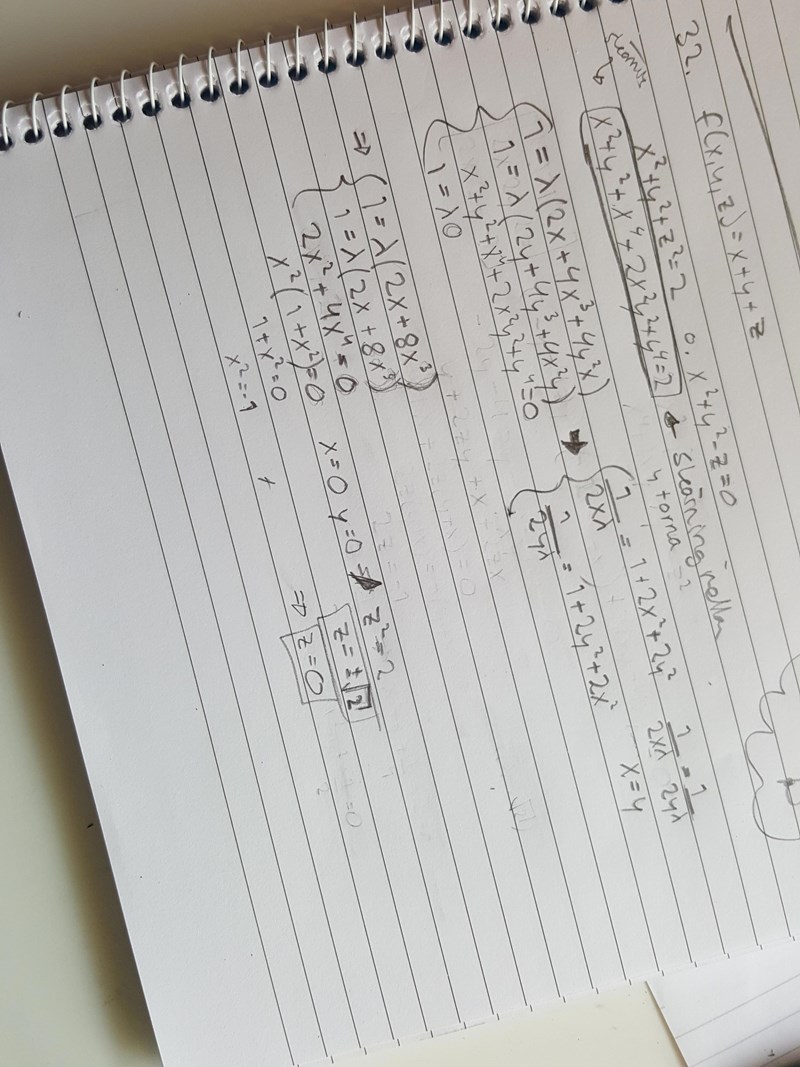 32. f(x,y,z) = x+y+z
x²+y²+z²=2 o. x²+y²-z=0
x²+y²+x⁴+2x²y²+y⁴=2 ← skärning mellan
y torna
1 = λ(2x+4x³+4y²x)
1 = λ(2y+4y³+4x²y)
x²+y²+x⁴+2x²y²+y⁴=0
1 = λ0
→ { 1/2xλ = 1+2x²+2y²
1/2yλ = 1+2y²+2x²
1/2xλ = 1/2yλ
x=y
⇒ { 1 = λ(2x+8x³)
1 = λ(2x+8x³)
2x²+4x⁴=0
x²(1+x²)=0
1+x²=0
x²=-1
x=0 y=0 ⇒ z²=2
z=±√2
⇒ z=0